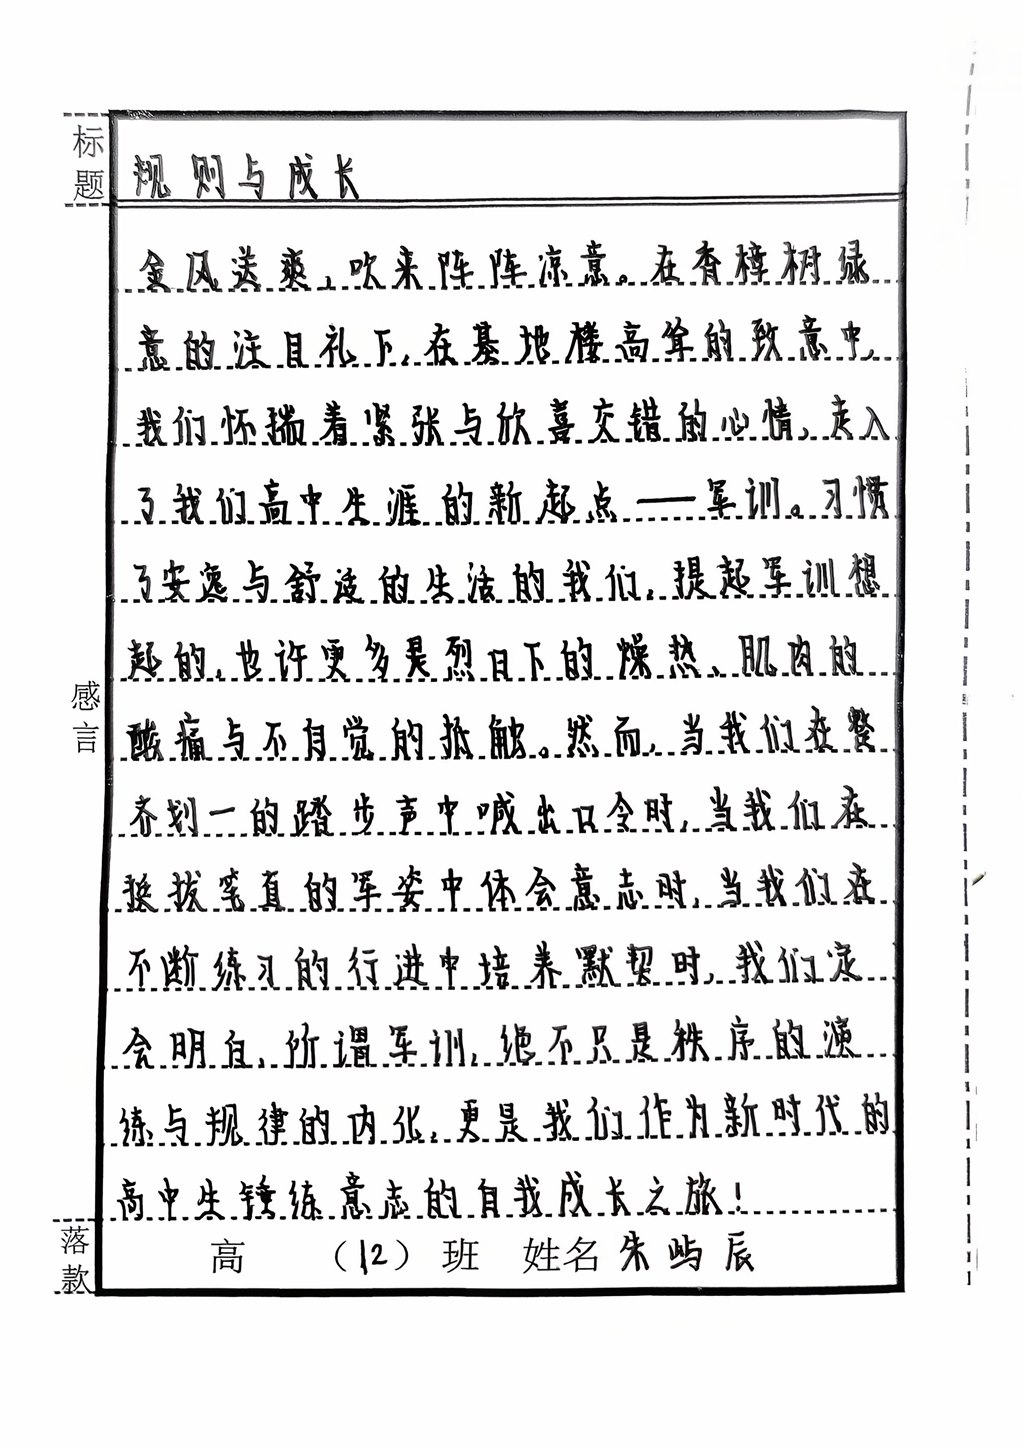 标题
规则与成长
金风送爽，吹来阵阵凉意。在香樟树绿
意的注目礼下，在基地楼高耸的致意中，
我们怀揣着紧张与欣喜交错的心情，走入
了我们高中生涯的新起点——军训。习惯
了安逸与舒适的生活的我们，提起军训想
起的，也许更多是烈日下的燥热、肌肉的
酸痛与不自觉的抵触。然而，当我们在整
齐划一的踏步声中喊出口令时，当我们在
挺拔笔直的军姿中体会意志时，当我们在
不断练习的行进中培养默契时，我们定
会明白，所谓军训，绝不只是秩序的演
练与规律的内化，更是我们作为新时代的
高中生锤练意志的自我成长之旅！
感言
落款
高 （12）班 姓名 朱屿辰